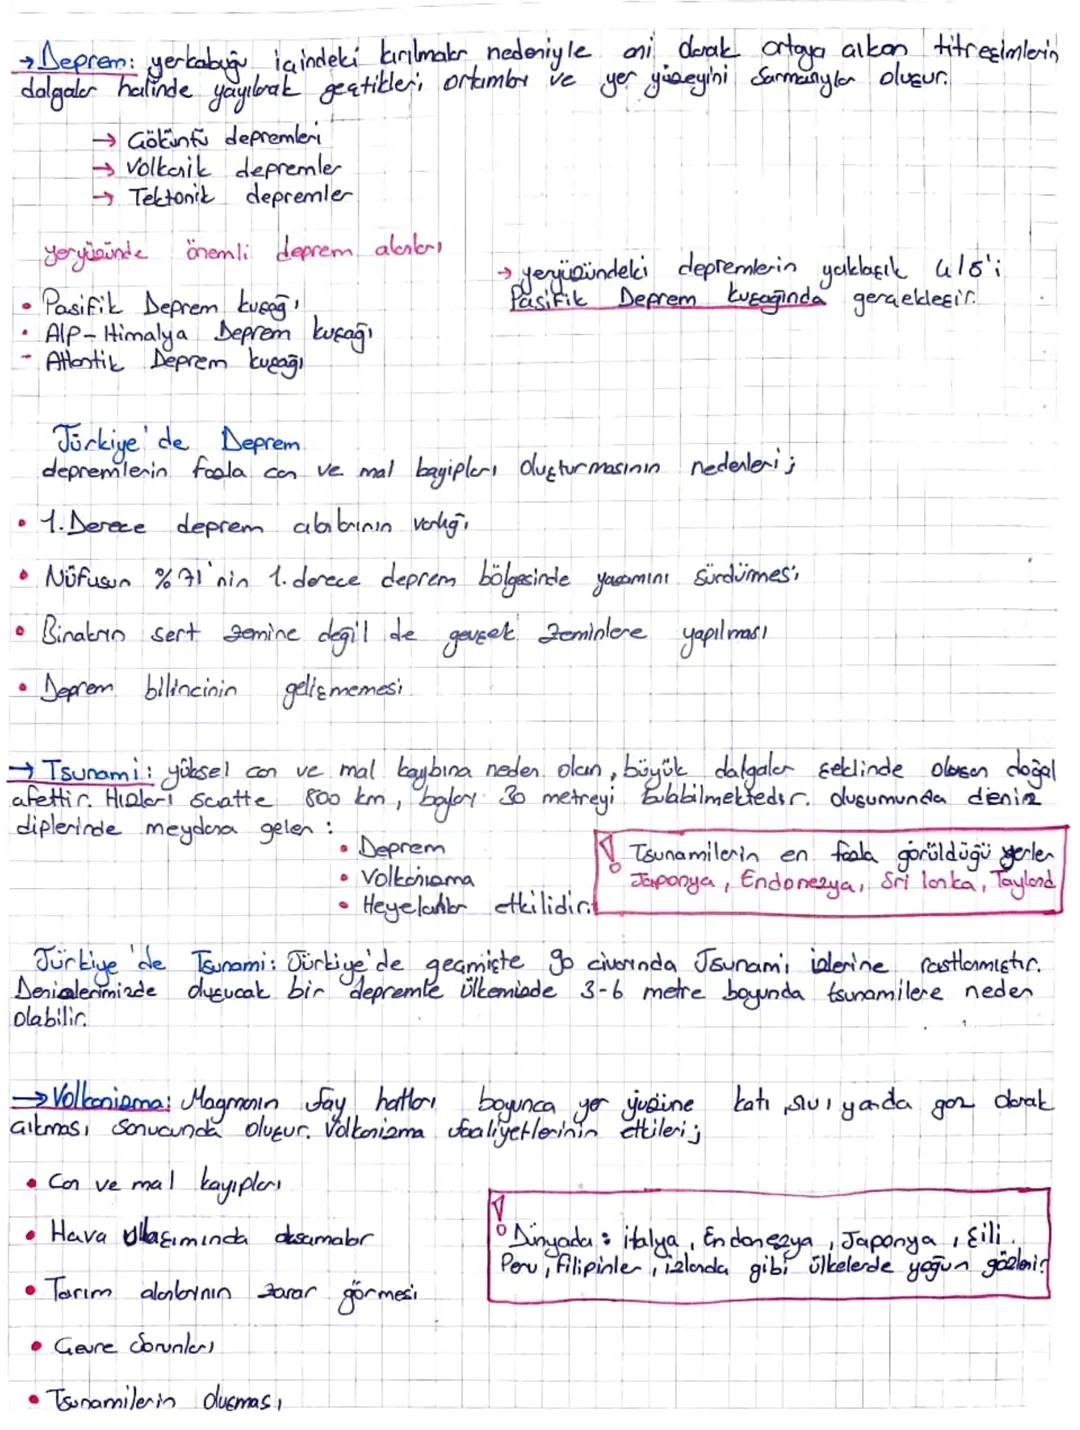 → Deprem: yerkabuğu içindeki kırılmalar nedeniyle ani olarak ortaya çıkan titreşimlerin
dalgalar halinde yayılarak geçtikleri ortamları ve yer yüzeyini sarmasıyla oluşur.
→ Çöküntü depremleri
→ Volkanik depremler
→ Tektonik depremler
yeryüzünde önemli deprem alanları
→ yeryüzündeki depremlerin yaklaşık 4/5'i
Pasifik Deprem kuşağında gerçekleşir.
• Pasifik Deprem kuşağı
• Alp-Himalya Deprem kuşağı
- Atlantik Deprem kuşağı
Türkiye'de Deprem
depremlerin fazla can ve mal kayıpları oluşturmasının nedenleri;
• 1. Derece deprem alanlarının varlığı
• Nüfusun %71'nin 1. derece deprem bölgesinde yaşamını sürdürmesi
• Binaların sert zemine değil de gevşek zeminlere yapılması
• Deprem bilincinin gelişmemesi
→ Tsunami: yüksel can ve mal kaybına neden olan, büyük dalgalar şeklinde oluşan doğal
afettir. Hızları saatte 800 km, boyları 30 metreyi bulabilmektedir. oluşumunda deniz
diplerinde meydana gelen:
• Deprem
• Volkanizma
• Heyelanlar etkilidir.
! Tsunamilerin en fazla görüldüğü yerler
Japonya, Endonezya, Sri lanka, Tayland
Türkiye'de Tsunami: Türkiye'de geçmişte 90 civarında Tsunami izlerine rastlanmıştır.
Denizlerimizde oluşucak bir depremle ülkemizde 3-6 metre boyunda tsunamilere neden
olabilir.
→ Volkanizma: Magmanın fay hatları boyunca yer yüzüne katı, sıvı yada gaz olarak
çıkması sonucunda oluşur. Volkanizma faaliyetlerinin etkileri;
• Can ve mal kayıpları
• Hava ulaşımında aksamalar
• Tarım alanlarının zarar görmesi
• Çevre sorunları
• Tsunamilerin oluşması
! Dünyada: italya, Endonezya, Japonya, Şili,
Peru, filipinler, izlanda gibi ülkelerde yoğun gözlenir.